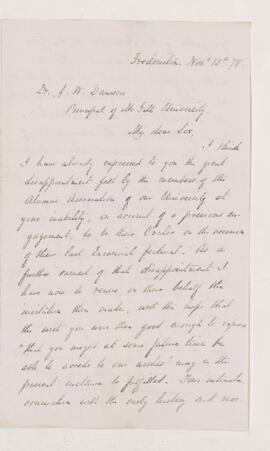 Fredericton Nov. 13th 78
Dr. J. W. Dawson
Principal of McGill University
My dear Sir,
I think
I have already expressed to you the great
disappointment felt by the members of the
Alumni Association of our University at
your inability, on account of a previous en-
gagement, to be their Orator on the occasion
of the last Encoenial festival. As a
further earnest of that disappointment I
have now to renew on their behalf the
invitation then made, with the hope that
the wish you were then good enough to express
"that you might at some future time be
able to accede to our wishes" may in the
present instance be fulfilled. Your intimate
connection with the early history and